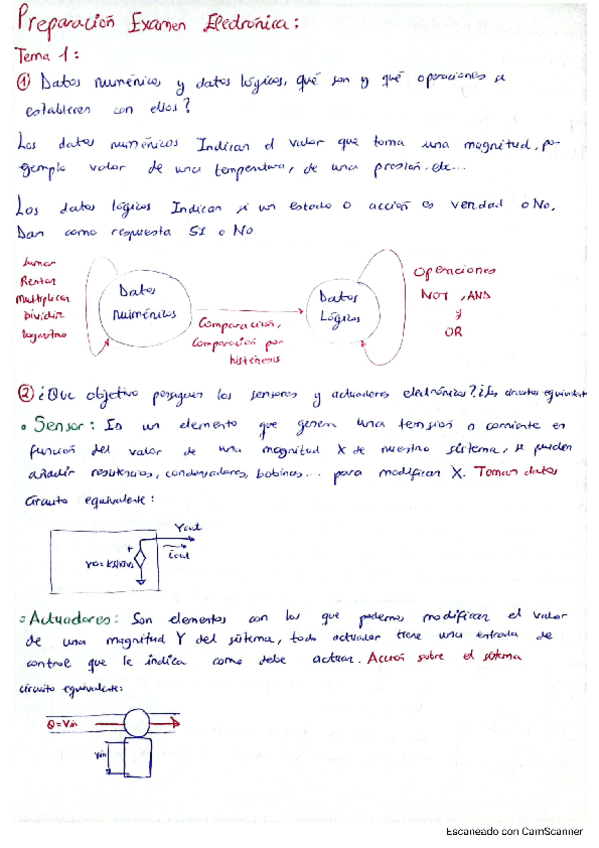 Preparación Examen Electrónica:
Tema 1:
① Datos numéricos y datos lógicos, qué son y qué operaciones se
establecen con ellos?
Los datos numéricos Indican el valor que toma una magnitud, por
ejemplo valor de una temperatura, de una presión. etc...
Los datos lógicos Indican si un estado o acción es verdad o No.
Dan como respuesta SI o No
Sumar
Restar
Multiplicar
Dividir
logaritmo
Datos
numéricos
Comparación,
Comparación por
histéresis
Datos
Lógicos
Operaciones
NOT, AND
y
OR
② ¿Que objetivo persiguen los sensores y actuadores electrónicos? ¿Sus circuitos equivalent
• Sensor: Es un elemento que genera una tensión o corriente en
función del valor de una magnitud X de nuestro sistema, se pueden
añadir resistencias, condensadores, bobinas... para modificar X. Toman datos
Circuito equivalente:
Vout
+
iout
• Actuadores: Son elementos con los que podemos modificar el valor
de una magnitud Y del sistema, todo actuador tiene una entrada de
control que le indica como debe actuar. Acción sobre el sistema
circuito equivalente:
Q = Vin
Vin
Escaneado con CamScanner